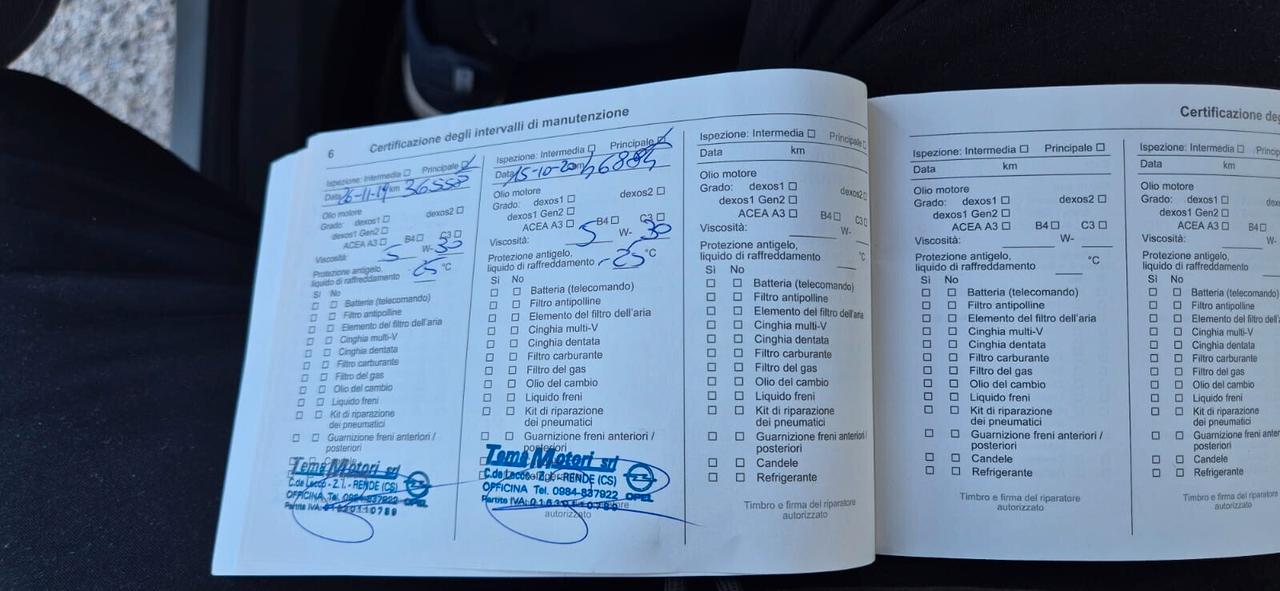 6 Certificazione degli intervalli di manutenzione
Ispezione: Intermedia ☐ Principale ☑
Data 26-11-19 km 36558
Olio motore
Grado: dexos1 ☐ dexos2 ☐
dexos1 Gen2 ☐
ACEA A3 ☐ B4 ☐ C3 ☐
Viscosità: 5 W- 30
Protezione antigelo,
liquido di raffreddamento -25 °C
Sì No
☐ ☐ Batteria (telecomando)
☐ ☐ Filtro antipolline
☐ ☐ Elemento del filtro dell'aria
☐ ☐ Cinghia multi-V
☐ ☐ Cinghia dentata
☐ ☐ Filtro carburante
☐ ☐ Filtro del gas
☐ ☐ Olio del cambio
☐ ☐ Liquido freni
☐ ☐ Kit di riparazione
dei pneumatici
☐ ☐ Guarnizione freni anteriori /
posteriori
Tema Motori srl
C.da Lecco - Z.I. - RENDE (CS)
OFFICINA Tel. 0984-837922 OPEL
Partita IVA:
Ispezione: Intermedia ☐ Principale ☑
Data 15-10-20 km 46884
Olio motore
Grado: dexos1 ☐ dexos2 ☐
dexos1 Gen2 ☐
ACEA A3 ☐ B4 ☐ C3 ☐
Viscosità: 5 W- 30
Protezione antigelo,
liquido di raffreddamento -25 °C
Sì No
☐ ☐ Batteria (telecomando)
☐ ☐ Filtro antipolline
☐ ☐ Elemento del filtro dell'aria
☐ ☐ Cinghia multi-V
☐ ☐ Cinghia dentata
☐ ☐ Filtro carburante
☐ ☐ Filtro del gas
☐ ☐ Olio del cambio
☐ ☐ Liquido freni
☐ ☐ Kit di riparazione
dei pneumatici
☐ ☐ Guarnizione freni anteriori /
posteriori
Tema Motori srl
C.da Lecco - Z.I. - RENDE (CS)
OFFICINA Tel. 0984-837922 OPEL
Partita IVA:
autorizzato
Ispezione: Intermedia ☐ Principale ☐
Data km
Olio motore
Grado: dexos1 ☐ dexos2 ☐
dexos1 Gen2 ☐
ACEA A3 ☐ B4 ☐ C3 ☐
Viscosità: W-
Protezione antigelo,
liquido di raffreddamento °C
Sì No
☐ ☐ Batteria (telecomando)
☐ ☐ Filtro antipolline
☐ ☐ Elemento del filtro dell'aria
☐ ☐ Cinghia multi-V
☐ ☐ Cinghia dentata
☐ ☐ Filtro carburante
☐ ☐ Filtro del gas
☐ ☐ Olio del cambio
☐ ☐ Liquido freni
☐ ☐ Kit di riparazione
dei pneumatici
☐ ☐ Guarnizione freni anteriori /
posteriori
☐ ☐ Candele
☐ ☐ Refrigerante
Timbro e firma del riparatore
autorizzato
Certificazione deg
Ispezione: Intermedia ☐ Principale ☐
Data km
Olio motore
Grado: dexos1 ☐ dexos2 ☐
dexos1 Gen2 ☐
ACEA A3 ☐ B4 ☐ C3 ☐
Viscosità: W-
Protezione antigelo,
liquido di raffreddamento °C
Sì No
☐ ☐ Batteria (telecomando)
☐ ☐ Filtro antipolline
☐ ☐ Elemento del filtro dell'aria
☐ ☐ Cinghia multi-V
☐ ☐ Cinghia dentata
☐ ☐ Filtro carburante
☐ ☐ Filtro del gas
☐ ☐ Olio del cambio
☐ ☐ Liquido freni
☐ ☐ Kit di riparazione
dei pneumatici
☐ ☐ Guarnizione freni anteriori /
posteriori
☐ ☐ Candele
☐ ☐ Refrigerante
Timbro e firma del riparatore
autorizzato
Ispezione: Intermedia ☐
Data km
Olio motore
Grado: dexos1 ☐
dexos1 Gen2 ☐
ACEA A3 ☐ B4 ☐
Viscosità:
Protezione antigelo,
liquido di raffreddamento
Sì No
☐ ☐ Batteria (telecomando)
☐ ☐ Filtro antipolline
☐ ☐ Elemento del filtro dell'a
☐ ☐ Cinghia multi-V
☐ ☐ Cinghia dentata
☐ ☐ Filtro carburante
☐ ☐ Filtro del gas
☐ ☐ Olio del cambio
☐ ☐ Liquido freni
☐ ☐ Kit di riparazione
dei pneumatici
☐ ☐ Guarnizione freni anter
posteriori
☐ ☐ Candele
☐ ☐ Refrigerante
Timbro e firma del riparatore
autorizzato